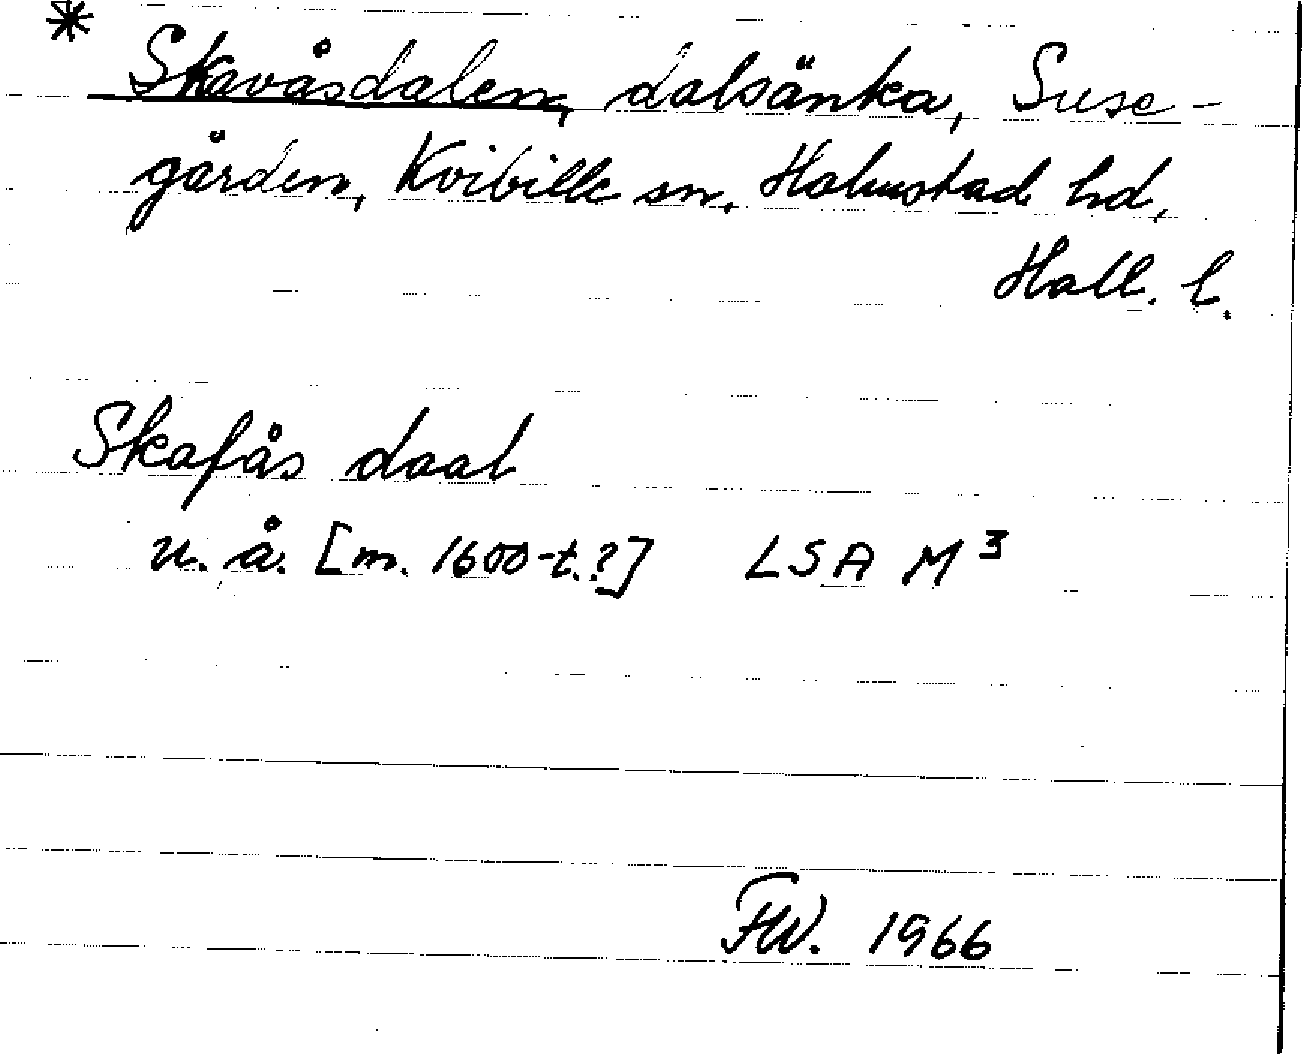 * Skavåsdalen, dalsänka, Suse-
gården, Kvibille sn, Halmstad hd,
Hall. l.
Skafås daal
u. å. [m. 1600-t.?] LSA M³
FW. 1966